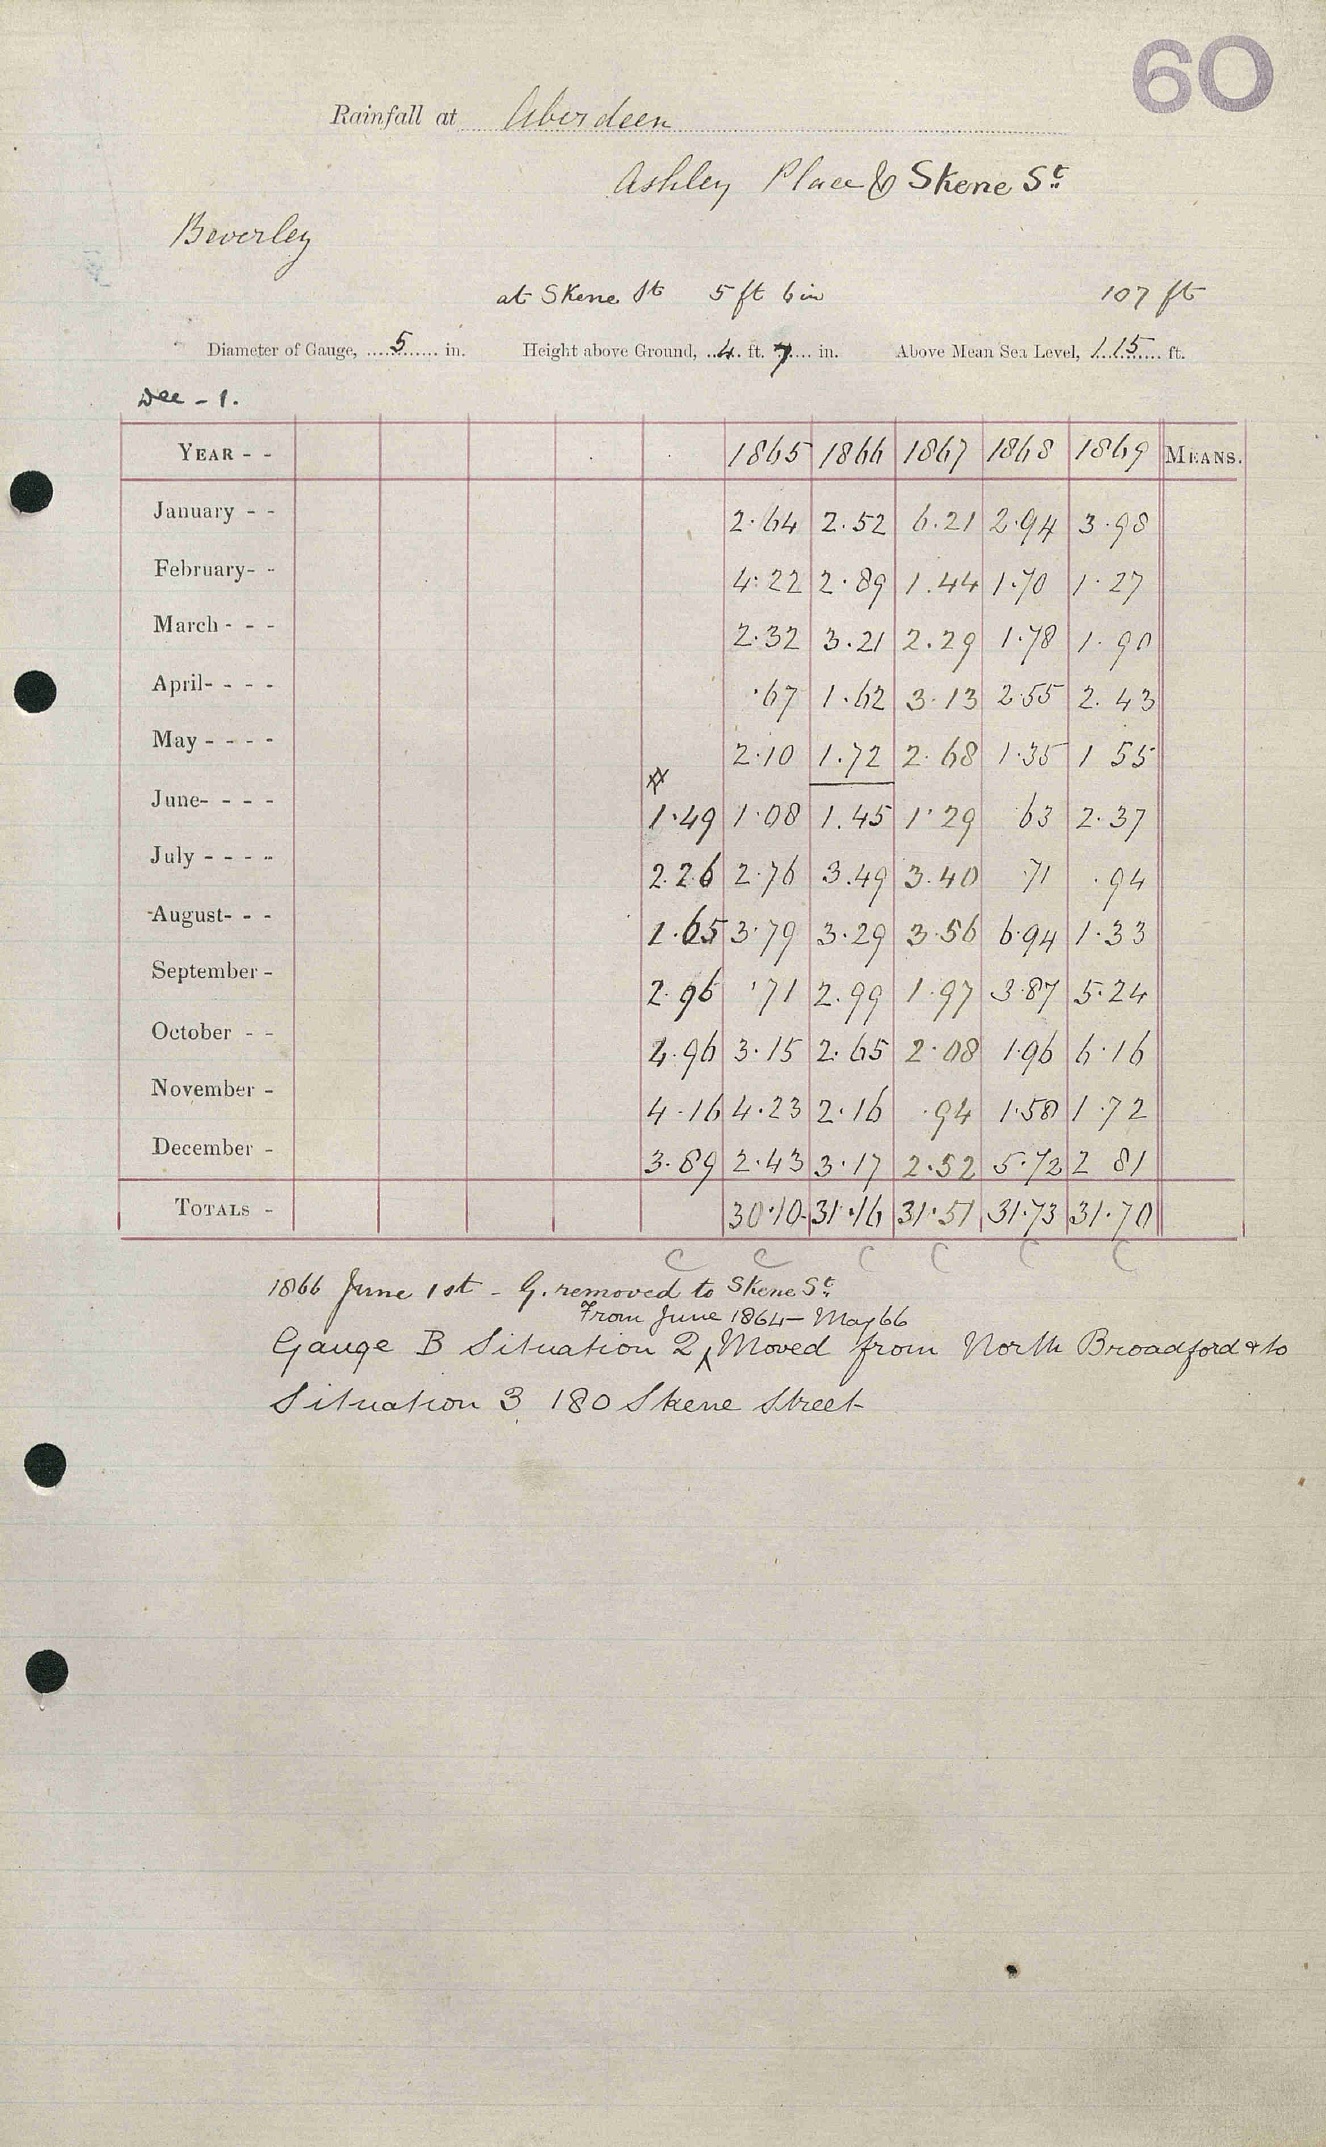 60
Rainfall at Aberdeen
Ashley Place & Skene St.
Beverley
at Skene St 5 ft 6 in 107 ft
Diameter of Gauge, 5 in. Height above Ground, 4 ft. 7 in. Above Mean Sea Level, 115 ft.
Dec - 1.
YEAR - - 1865 1866 1867 1868 1869 MEANS.
January - - 2.64 2.52 6.21 2.94 3.98
February- - 4.22 2.89 1.44 1.70 1.27
March - - - 2.32 3.21 2.29 1.78 1.90
April- - - - .67 1.62 3.13 2.55 2.43
May - - - - 2.10 1.72 2.68 1.35 1 55
June- - - - 1.49 1.08 1.45 1.29 63 2.37
July - - - - 2.26 2.76 3.49 3.40 .71 .94
August- - - 1.65 3.79 3.29 3.56 6.94 1.33
September - 2.96 .71 2.99 1.97 3.87 5.24
October - - 4.96 3.15 2.65 2.08 1.96 6.16
November - 4.16 4.23 2.16 .94 1.58 1.72
December - 3.89 2.43 3.17 2.52 5.72 2 81
TOTALS - 30.10 31.16 31.51 31.73 31.70
C C C C C C
1866 June 1st - G. removed to Skene St.
From June 1864 - May 66
Gauge B Situation 2, Moved from North Broadford & to
Situation 3 180 Skene Street